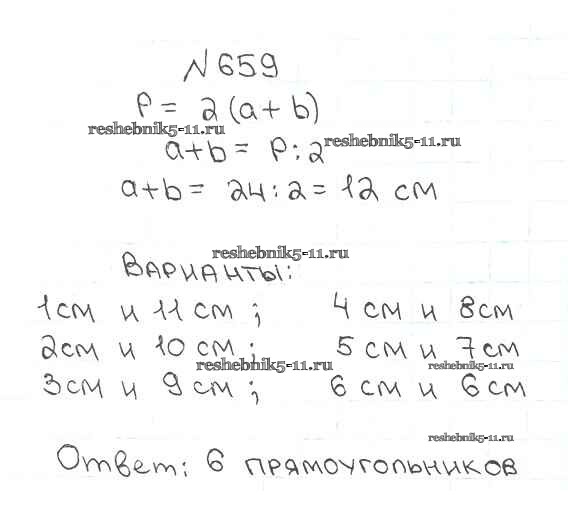 №659
P = 2(a+b)
reshebnik5-11.ru
a+b = P:2
reshebnik5-11.ru
a+b = 24:2 = 12 см
reshebnik5-11.ru
Варианты:
1см и 11 см; 4 см и 8см
2см и 10 см; 5 см и 7см
reshebnik5-11.ru reshebnik5-11.ru
3см и 9 см; 6 см и 6 см
reshebnik5-11.ru
Ответ: 6 прямоугольников